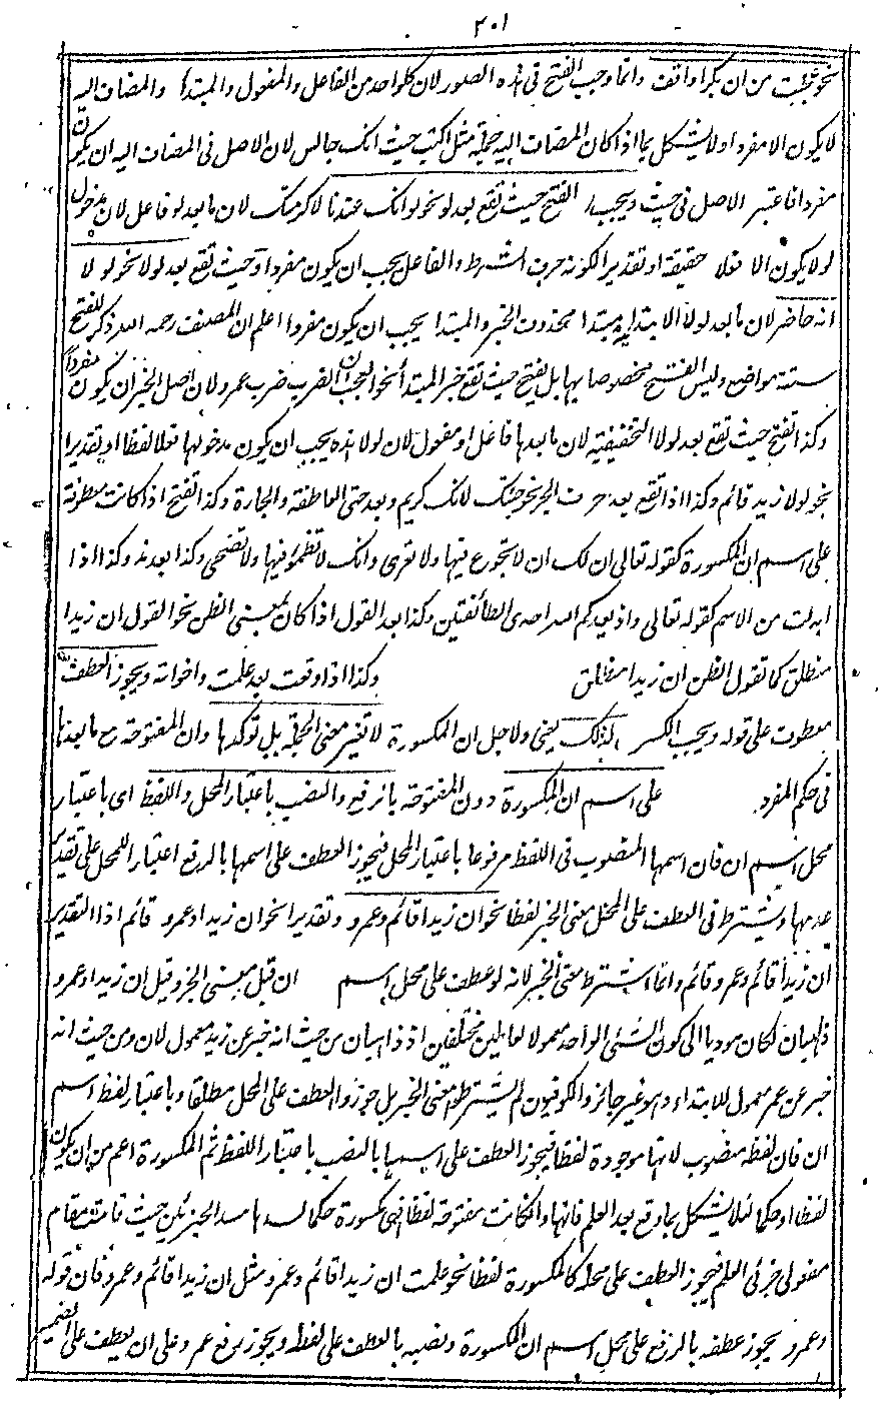 ٢٠١
نحو عجبت من ان بكرا واقف وانما وجب الفتح فى هذه الصور لان كلواحد من الفاعل والمفعول والمبتدا والمضاف اليه
لا يكون الا مفردا ولا يشكل بما اذا كان المضاف اليه جملة مثل اكتب حيث انك جالس لان الاصل فى المضاف اليه ان يكون
مفردا فاعتبر الاصل فى حيث ويجب الفتح حيث تقع بعد لو نحو لو انك عندنا لاكرمتك لان ما بعد لو فاعل لان مدخول
لو لا يكون الا فعلا حقيقة او تقديرا لكونه حرف الشرط والفاعل يجب ان يكون مفردا وحيث تقع بعد لولا نحو لو لا
انه حاضر لان ما بعد لولا الابتدائية مبتدا محذوف الخبر والمبتدا يجب ان يكون مفردا اعلم ان المصنف رحمه الله ذكر للفتح
ستة مواضع وليس الفتح مخصوصا بها بل يفتح حيث تقع خبر المبتدأ نحو العجب ان الضرب ضرب عمرو لان اصل الخبر ان يكون مفردا
وكذا تفتح حيث تقع بعد لولا التحضيضية لان ما بعدها فاعل او مفعول لان لولا هذه يجب ان يكون مدخولها فعلا لفظا او تقديرا
نحو لولا زيد قائم وكذا اذا تقع بعد حرف الجر نحو جئتك لانك كريم وبعد حتى العاطفة والجارة وكذا تفتح اذا كانت معطوفة
على اسم ان المكسورة كقوله تعالى ان لك ان لا تجوع فيها ولا تعرى وانك لا تظمؤ فيها ولا تضحى وكذا بعد مذ وكذا اذا
ابدلت من الاسم كقوله تعالى واذ يعدكم الله احدى الطائفتين وكذا بعد القول اذا كان بمعنى الظن نحو القول ان زيدا
منطلق كما تقول الظن ان زيدا منطلق وكذا اذا وقعت بعد علمت واخواته ويجوز العطف
معطوف على قوله ويجب الكسر لذلك يعنى ولاجل ان المكسورة لا تغير معنى الجملة بل تؤكدها وان المفتوحة مع ما بعدها
فى حكم المفرد على اسم ان المكسورة دون المفتوحة بالرفع والنصب باعتبار المحل واللفظ اى باعتبار
محل اسم ان فان اسمها المنصوب فى اللفظ مرفوعا باعتبار المحل فيجوز العطف على اسمها بالرفع اعتبارا للمحل على تقدير
عدمها ويشترط فى العطف على المحل معنى الخبر لفظا نحو ان زيدا قائم وعمرو وتقديرا نحو ان زيدا وعمرو قائم اذا التقدير
ان زيدا قائم وعمرو قائم وانما اشترط معنى الخبر لانه لو عطف على محل اسم ان قبل معنى الخبر وقيل ان زيدا وعمرو
ذاهبان لكان موديا الى كون الشئ الواحد معمولا لعاملين مختلفين اذ ذاهبان من حيث انه خبر عن زيد معمول لان ومن حيث انه
خبر عن عمرو معمول للابتداء وهو غير جائز والكوفيون لم يشترطوا معنى الخبر بل جوزوا العطف على المحل مطلقا وباعتبار لفظ اسم
ان فان لفظه منصوب لانها موجودة لفظا فيجوز العطف على اسمها بالنصب باعتبار اللفظ ثم المكسورة اعم من ان يكون
لفظا او حكما لئلا يشكل بما وقع بعد العلم فانها وان كانت مفتوحة لفظا فهى مكسورة حكما لسدها مسد الجزئين حيث قامت مقام
مفعولى جزئى العلم فيجوز العطف على محله كالمكسورة لفظا نحو علمت ان زيدا قائم وعمرو مثل ان زيدا قائم وعمرو فان قوله
وعمرو يجوز عطفه بالرفع على محل اسم ان المكسورة ونصبه بالعطف على لفظه ويجوز رفع عمرو على ان يعطف على الضمير